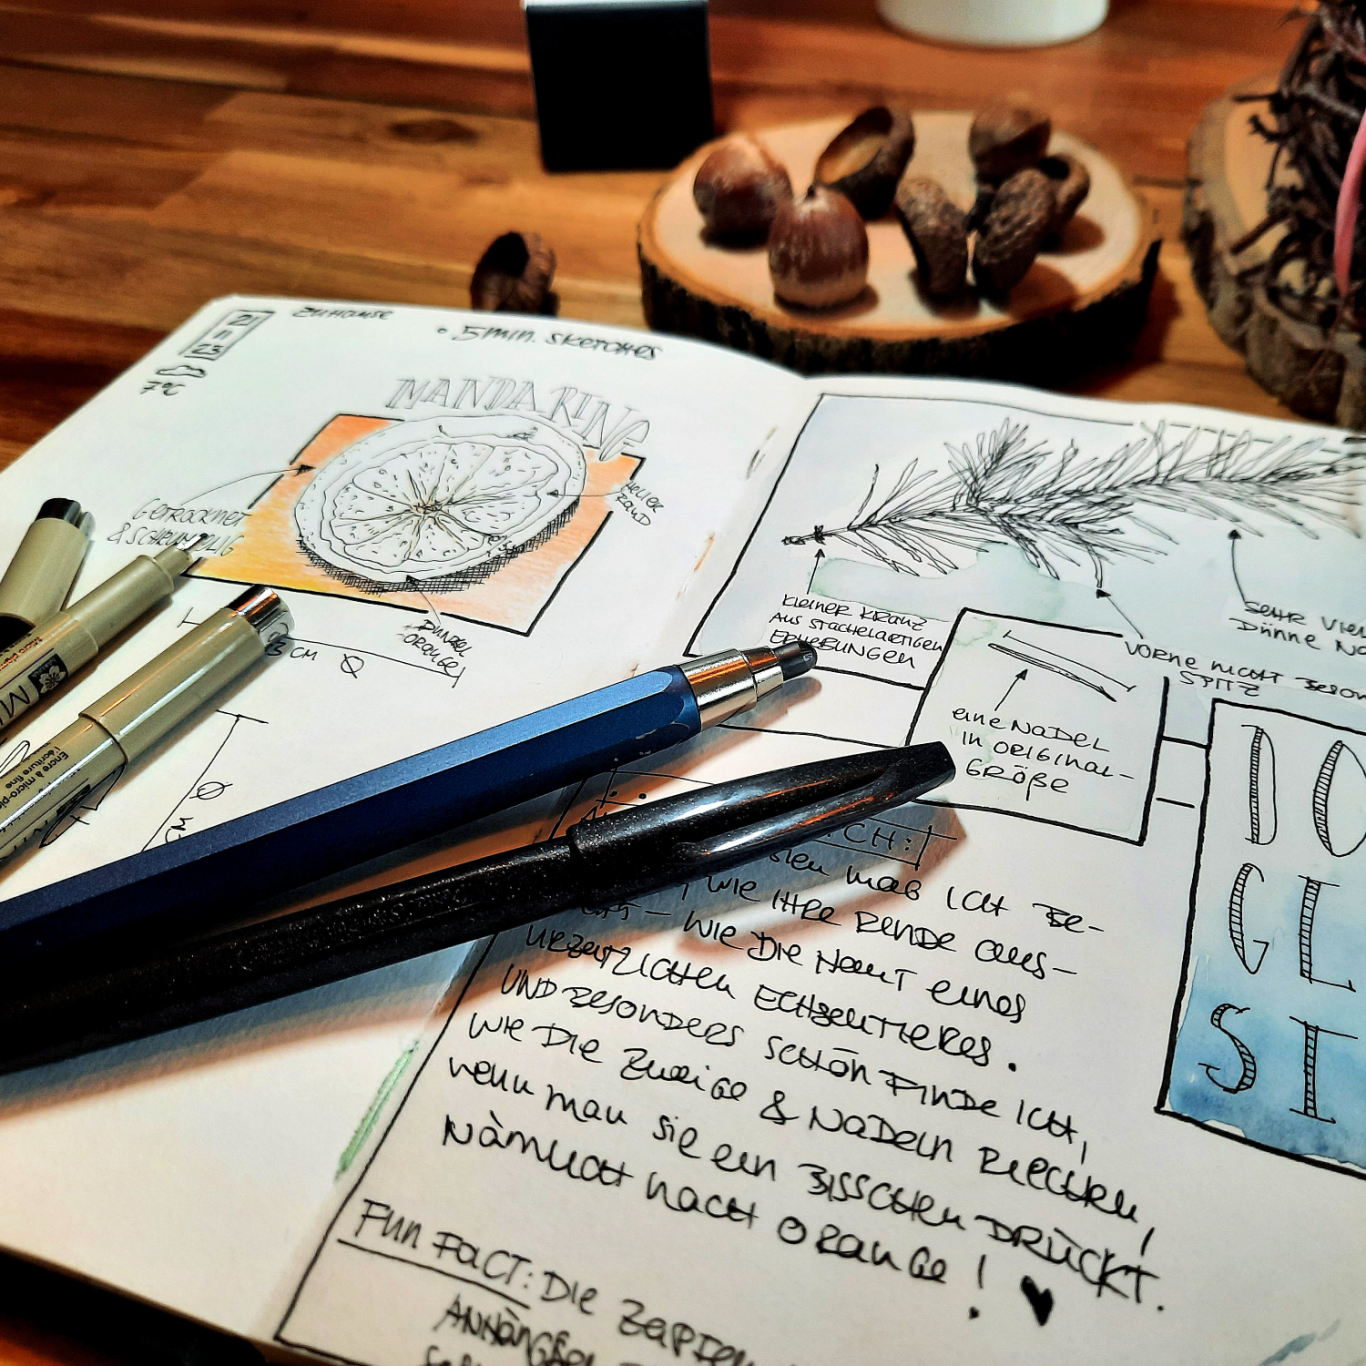 21
11
23
7°C
ZUHAUSE
• 5 min. SKETCHES
MANDARINE
GETROCKNET
& SCHRUMPLIG
HELLER
RAND
DUNKEL
ORANGE!
CM Ø
Ø
CM
KLEINER KRANZ
AUS STACHELARTIGEN
ERHEBUNGEN
SEHR VIE
DÜNNE NA
VORNE NICHT BESON
SPITZ
eine NADEL
IN ORIGINAL-
GRÖßE
DO
GL
SI
CH:
MAG ICH BE-
, WIE IHRE RINDE AUS-
– WIE DIE HAUT EINES
URZEITLICHEN ECHSENTIERES.
UND BESONDERS SCHÖN FINDE ICH,
WIE DIE ZWEIGE & NADELN RIECHEN,
WENN MAN SIE EIN BISSCHEN DRÜCKT.
NÄMLICH NACH ORANGE! ♥
FUN FACT: DIE ZAPFEN
ANHÄNGSEL
Encre à micro-pi
l'écriture fine